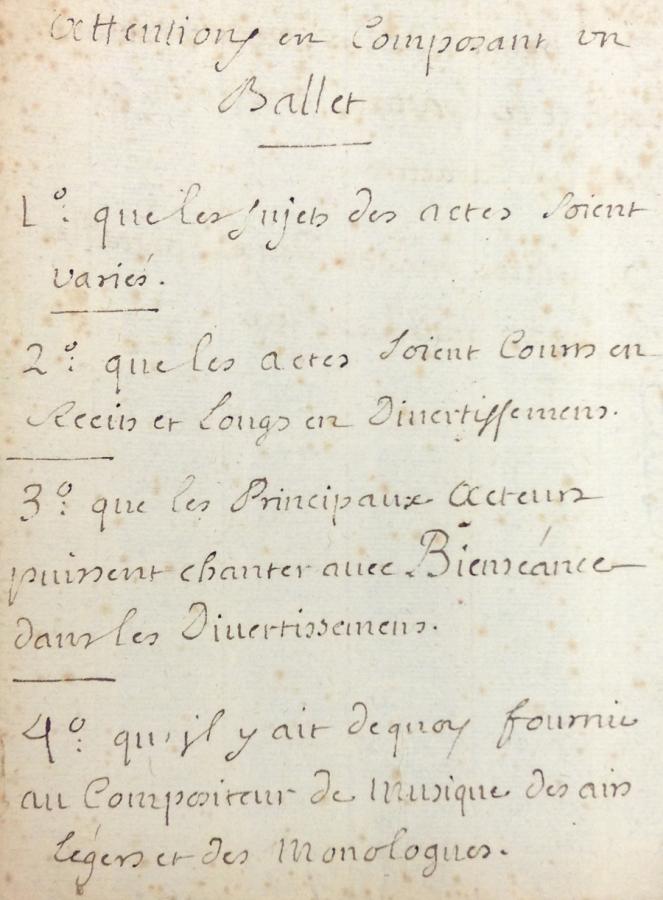 Attentions en Composant un
Ballet
1º: que les sujets des actes soient
variés.
2º: que les actes soient Courts en
Recits et Longs en Divertissemens.
3º: que les Principaux Acteurs
puissent chanter avec Bienséance
dans les Divertissemens.
4º: qu'jl y ait dequoy fournir
au Compositeur de Musique des airs
Légers et des Monologues.